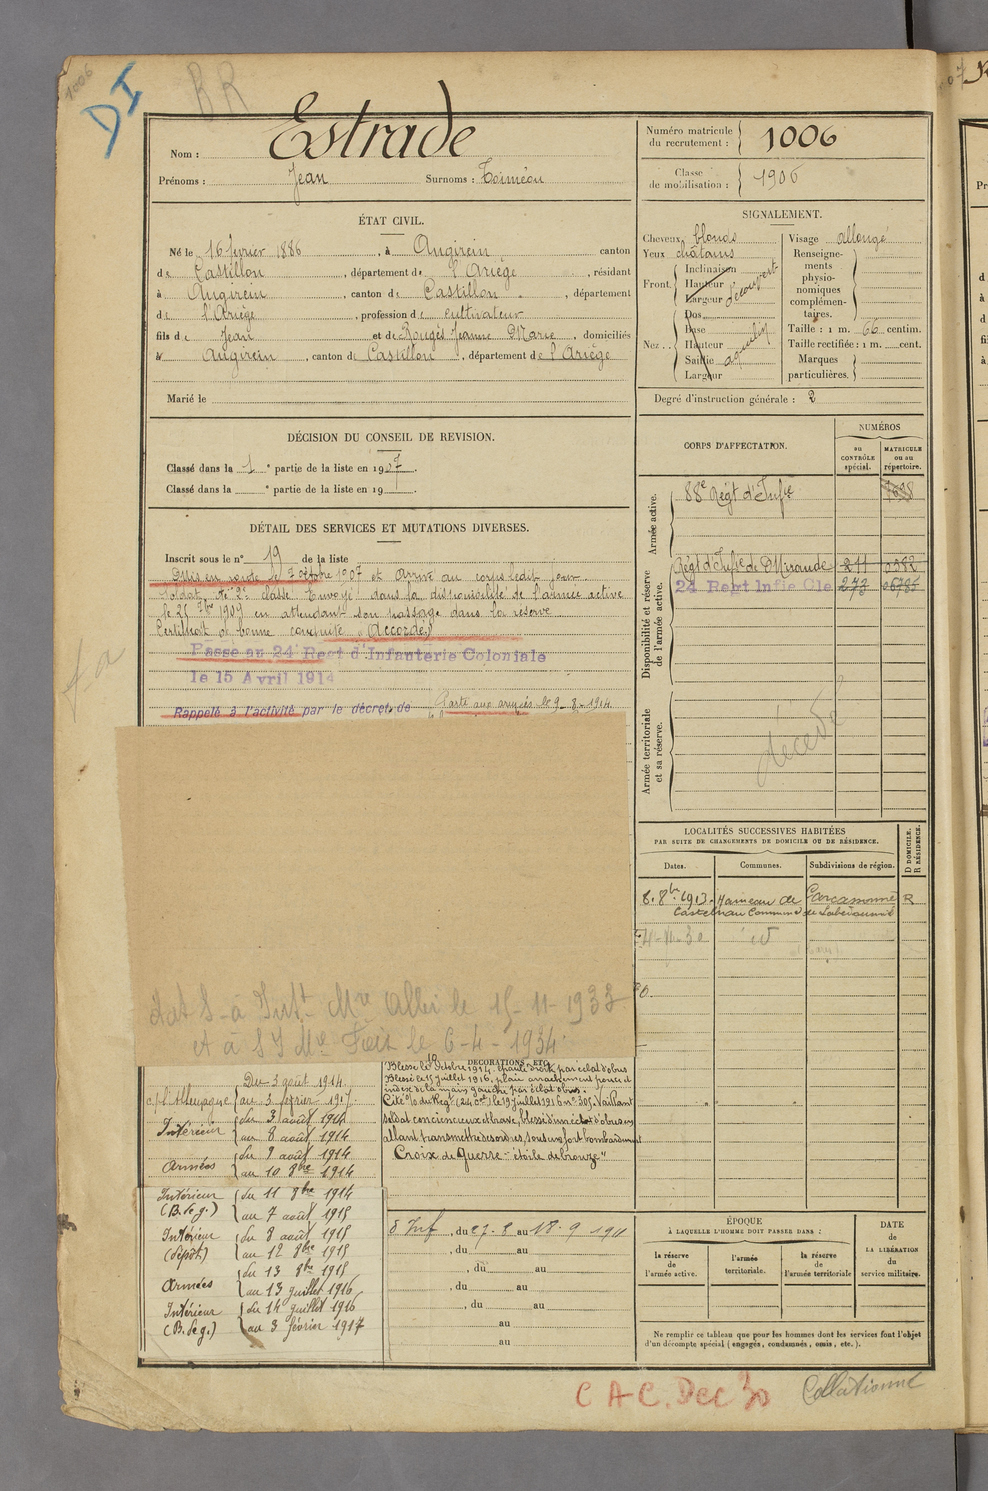 1006
DI
BR
Nom : Estrade
Prénoms : Jean Surnoms :
Numéro matricule du recrutement : 1006
Classe de mobilisation : 1906
ÉTAT CIVIL.
Né le 16 février 1886, à Augirein canton
de Castillon, département de l'Ariège, résidant
à Augirein, canton de Castillon, département
de l'Ariège, profession de cultivateur
fils de Jean et de Rougés Jeanne Marie, domiciliés
à Augirein, canton de Castillon, département de l'Ariège
Marié le
SIGNALEMENT.
Cheveux blonds
Yeux châtains
Front. Inclinaison
Hauteur
Largeur
découvert
Nez .. Dos
Base
Hauteur
Saillie
Largeur
aquilin
Visage allongé
Renseignements physionomiques complémentaires.
Taille : 1 m. 66 centim.
Taille rectifiée : 1 m. cent.
Marques particulières.
Degré d'instruction générale : 2
DÉCISION DU CONSEIL DE REVISION.
Classé dans la 1 e partie de la liste en 1907.
Classé dans la e partie de la liste en 19 .
DÉTAIL DES SERVICES ET MUTATIONS DIVERSES.
Inscrit sous le n° 19 de la liste
Mis en route le 7 octobre 1907 et arrivé au corps ledit jour
soldat de 2e classe Envoyé dans la disponibilité de l'armée active
le 25 7bre 1909 en attendant son passage dans la réserve
Certificat de bonne conduite "Accordé"
Passé au 24e Regt d'Infanterie Coloniale
le 15 Avril 1914
Rappelé à l'activité par le décret de
Parti aux armées le 9-8-1914
CORPS D'AFFECTATION.
NUMÉROS
au CONTRÔLE spécial.
MATRICULE ou au répertoire.
Armée active.
88e Régt d'Infie
Disponibilité et réserve de l'armée active.
Régt d'Infie de Mirande 211
24 Regt Infie Cle 273
Armée territoriale et sa réserve.
décédé
LOCALITÉS SUCCESSIVES HABITÉES
PAR SUITE DE CHANGEMENTS DE DOMICILE OU DE RÉSIDENCE.
Dates.
Communes.
Subdivisions de région.
D DOMICILE. R RÉSIDENCE.
8bre 1913 Hameau de Carcassonne R
Castelnau Commune de
état S à Int Mre Albi le 15-11-1933
et à S I Mre Foix le 6-4-1934
DÉCORATIONS, ETC.
Blessé le 10 Octobre 1914, épaule droite par éclat d'obus
Blessé le 15 juillet 1916, plaie arrachement pouce et
index de la main gauche par éclat d'obus.
Cité % du Régt (24 Cal) le 19 juillet 1916 n° 305, Vaillant
soldat consciencieux et brave, blessé d'un éclat d'obus en
allant transmettre des ordres, sous un fort bombardement
Croix de Guerre - étoile de bronze"
c/ l'Allemagne du 3 août 1914
au 3 février 1917.
Intérieur du 3 août 1914
au 8 août 1914
Armées du 9 août 1914
au 10 8bre 1914
Intérieur (B. de g.) du 11 8bre 1914
au 7 août 1915
Intérieur (dépôt) du 8 août 1915
au 12 8bre 1915
Armées du 13 8bre 1915
au 13 juillet 1916
Intérieur (B. de g.) du 14 juillet 1916
au 3 février 1917
Inf, du 27-8 au 18-9 1911
, du au
, du au
, du au
, du au
au
au
ÉPOQUE
À LAQUELLE L'HOMME DOIT PASSER DANS :
la réserve de l'armée active.
l'armée territoriale.
la réserve de l'armée territoriale
DATE de LA LIBÉRATION du service militaire.
Ne remplir ce tableau que pour les hommes dont les services font l'objet
d'un décompte spécial (engagés, condamnés, omis, etc.).
CAC. Dec 30
Collationné